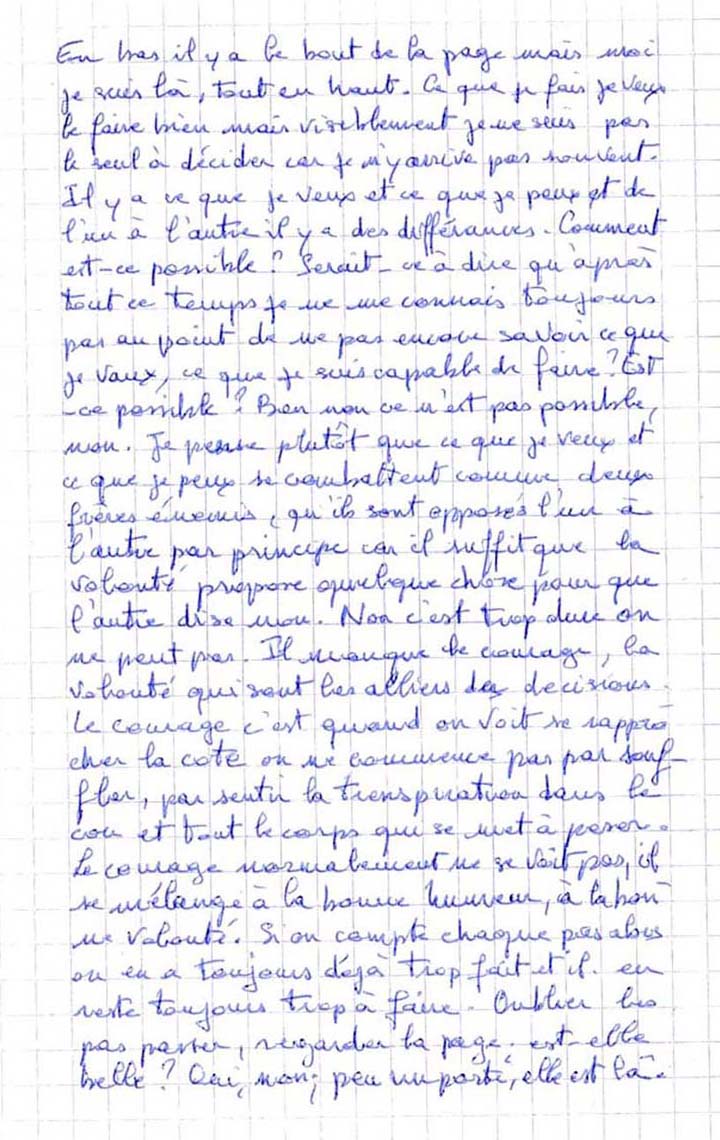 En bas il y a le bout de la page mais moi
je suis là, tout en haut. Ce que je fais je veux
le faire bien mais visiblement je ne suis pas
le seul à décider car je n'y arrive pas souvent.
Il y a ce que je veux et ce que je peux et de
l'un à l'autre il y a des différances. Comment
est-ce possible ? Serait-ce à dire qu'après
tout ce temps je ne me connais toujours
pas au point de ne pas encore savoir ce que
je vaux, ce que je suis capable de faire ? Est
-ce possible ? Ben non ce n'est pas possible,
non. Je pense plutôt que ce que je veux et
ce que je peux se combattent comme deux
frères énemis, qu'ils sont opposés l'un à
l'autre par principe car il suffit que la
volonté propose quelque chose pour que
l'autre dise non. Non c'est trop dure on
ne peut pas. Il manque le courage, la
volonté qui sont les alliers des decisions.
Le courage c'est quand on voit se rappro
cher la cote on ne commence pas par souf-
fler, par sentir la transpiration dans le
cou et tout le corps qui se met à peser.
Le courage normalement ne se voit pas, il
se mélange à la bonne humeur, à la bon
ne volonté. Si on compte chaque pas alors
on en a toujours déjà trop fait et il en
reste toujours trop à faire. Oublier les
pas passer, regarder la page. est-elle
belle ? Oui, non, peu importe, elle est là.